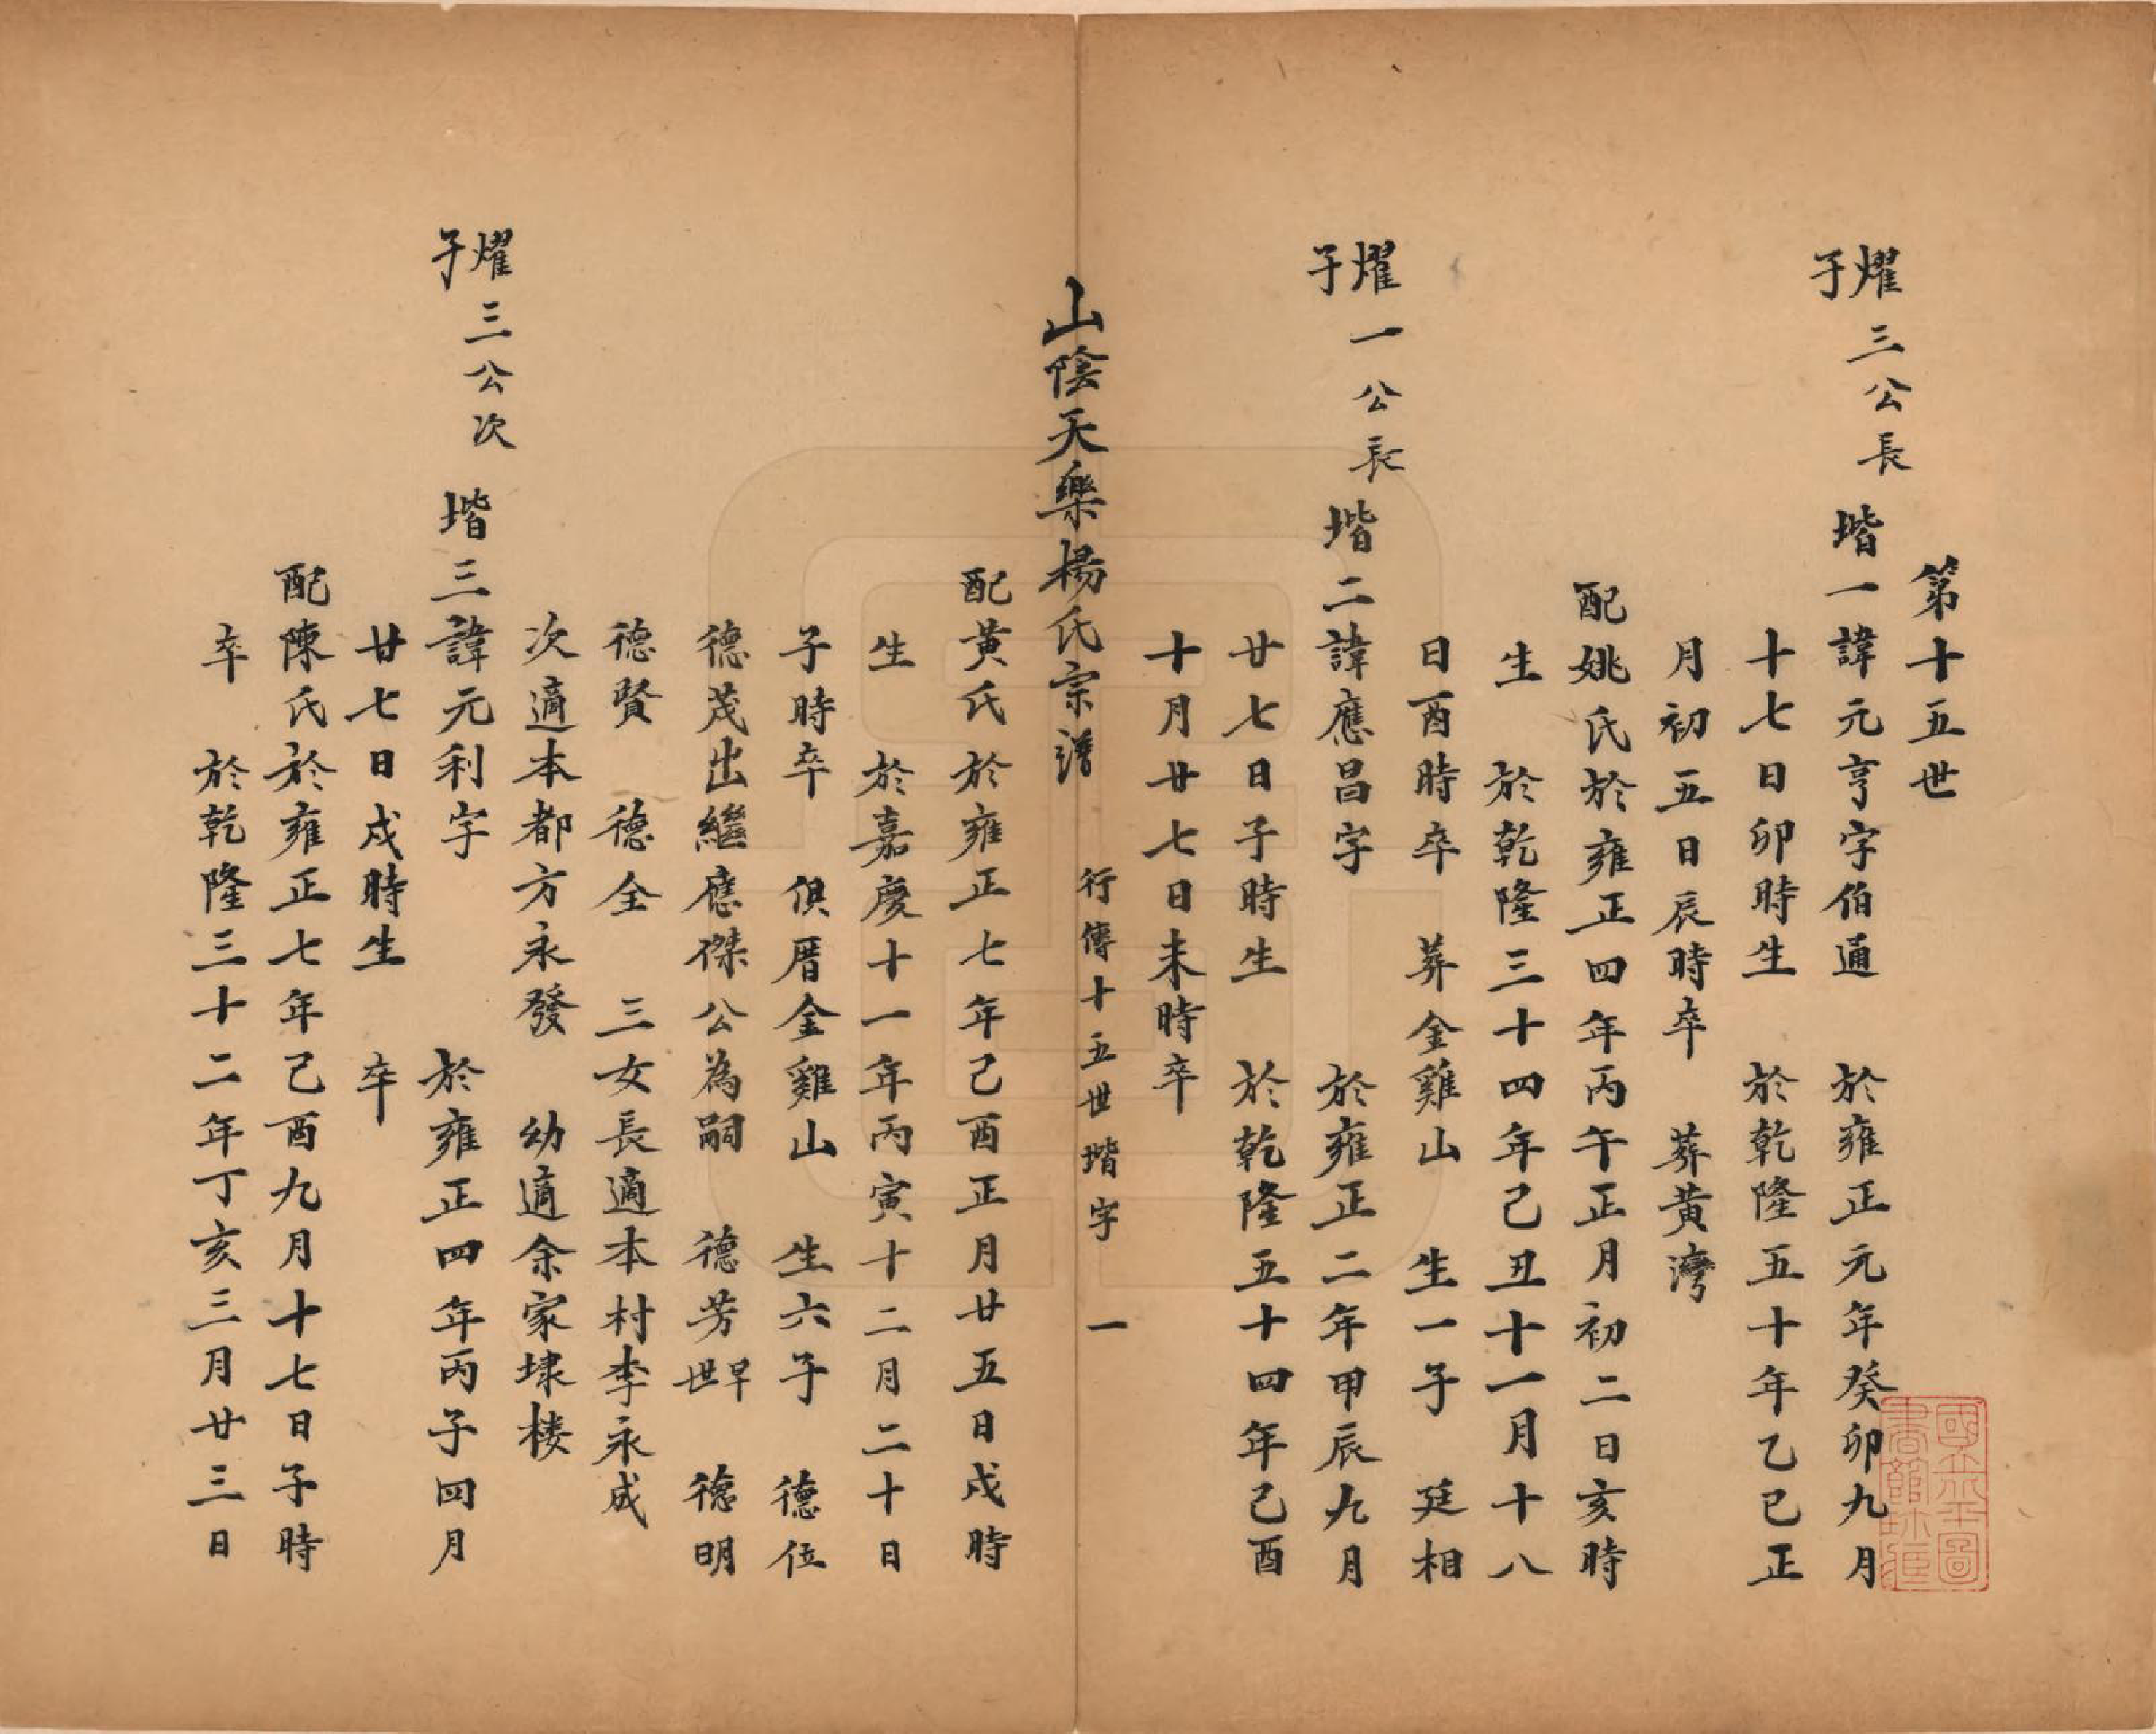 第十五世
燿三公長子 堦一諱元亨字伯通 於雍正元年癸卯九月
十七日卯時生 於乾隆五十年乙巳正
月初五日辰時卒 葬黃灣
配姚氏於雍正四年丙午正月初二日亥時
生 於乾隆三十四年己丑十一月十八
日酉時卒 葬金雞山 生一子 廷相
燿一公長子 堦二諱應昌字 於雍正二年甲辰九月
廿七日子時生 於乾隆五十四年己酉
十月廿七日未時卒
山陰天樂楊氏宗譜 行傳十五世堦字 一
配黃氏於雍正七年己酉正月廿五日戌時
生 於嘉慶十一年丙寅十二月二十日
子時卒 俱厝金雞山 生六子 德位
德茂出繼應傑公為嗣 德芳早世 德明
德賢 德全 三女長適本村李永成
次適本都方永發 幼適余家埭樓
燿三公次子 堦三諱元利字 於雍正四年丙子四月
廿七日戌時生 卒
配陳氏於雍正七年己酉九月十七日子時
卒 於乾隆三十二年丁亥三月廿三日
國立北平圖書館珍藏